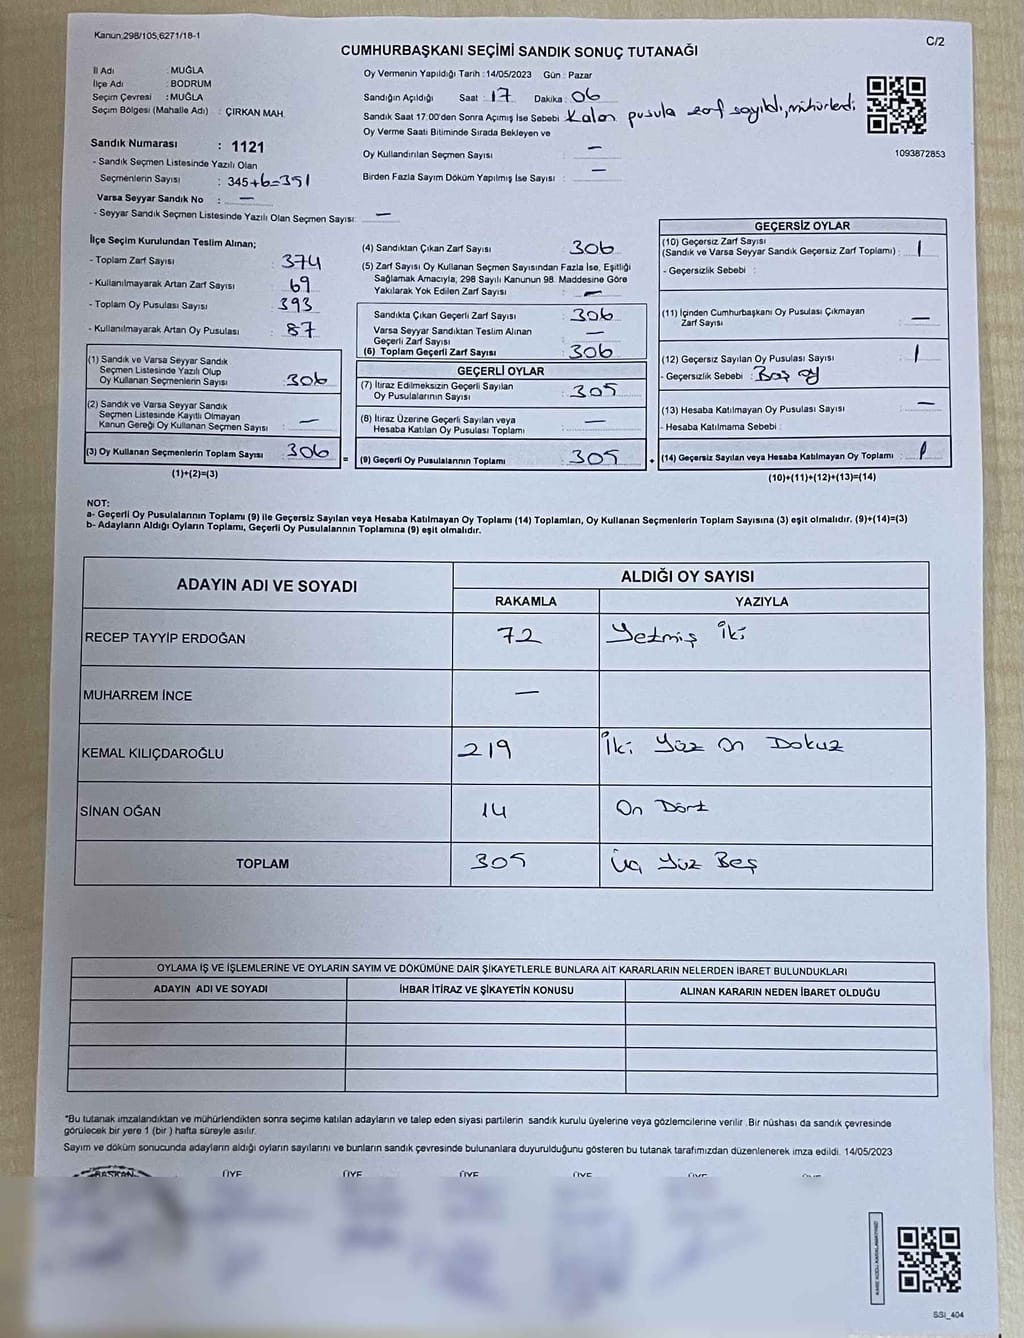 Kanun;298/105,6271/18-1
C/2
CUMHURBAŞKANI SEÇİMİ SANDIK SONUÇ TUTANAĞI
İl Adı : MUĞLA
İlçe Adı : BODRUM
Seçim Çevresi : MUĞLA
Seçim Bölgesi (Mahalle Adı) : ÇIRKAN MAH.
Sandık Numarası : 1121
- Sandık Seçmen Listesinde Yazılı Olan
Seçmenlerin Sayısı : 345+6=351
Varsa Seyyar Sandık No : —
- Seyyar Sandık Seçmen Listesinde Yazılı Olan Seçmen Sayısı: —
Oy Vermenin Yapıldığı Tarih :14/05/2023 Gün : Pazar
Sandığın Açıldığı Saat : 17 Dakika : 06
Sandık Saat 17:00'den Sonra Açımış İse Sebebi Kalan pusula zarf sayıldı, mühürlendi
Oy Verme Saati Bitiminde Sırada Bekleyen ve
Oy Kullandırılan Seçmen Sayısı : —
Birden Fazla Sayım Döküm Yapılmış İse Sayısı : —
1093872853
İlçe Seçim Kurulundan Teslim Alınan;
- Toplam Zarf Sayısı : 374
- Kullanılmayarak Artan Zarf Sayısı : 69
- Toplam Oy Pusulası Sayısı : 393
- Kullanılmayarak Artan Oy Pusulası : 87
(1) Sandık ve Varsa Seyyar Sandık
Seçmen Listesinde Yazılı Olup
Oy Kullanan Seçmenlerin Sayısı : 306
(2) Sandık ve Varsa Seyyar Sandık
Seçmen Listesinde Kayıtlı Olmayan
Kanun Gereği Oy Kullanan Seçmen Sayısı : —
(3) Oy Kullanan Seçmenlerin Toplam Sayısı : 306
(1)+(2)=(3)
(4) Sandıktan Çıkan Zarf Sayısı : 306
(5) Zarf Sayısı Oy Kullanan Seçmen Sayısından Fazla İse, Eşitliği
Sağlamak Amacıyla, 298 Sayılı Kanunun 98. Maddesine Göre
Yakılarak Yok Edilen Zarf Sayısı : —
Sandıkta Çıkan Geçerli Zarf Sayısı : 306
Varsa Seyyar Sandıktan Teslim Alınan
Geçerli Zarf Sayısı : —
(6) Toplam Geçerli Zarf Sayısı : 306
GEÇERLİ OYLAR
(7) İtiraz Edilmeksizin Geçerli Sayılan
Oy Pusulalarının Sayısı : 305
(8) İtiraz Üzerine Geçerli Sayılan veya
Hesaba Katılan Oy Pusulası Toplamı : —
= (9) Geçerli Oy Pusulalarının Toplamı : 305
GEÇERSİZ OYLAR
(10) Geçersiz Zarf Sayısı
(Sandık ve Varsa Seyyar Sandık Geçersiz Zarf Toplamı) : 1
- Geçersizlik Sebebi :
(11) İçinden Cumhurbaşkanı Oy Pusulası Çıkmayan
Zarf Sayısı : —
(12) Geçersiz Sayılan Oy Pusulası Sayısı : 1
- Geçersizlik Sebebi : Boş oy
(13) Hesaba Katılmayan Oy Pusulası Sayısı : —
- Hesaba Katılmama Sebebi :
+ (14) Geçersiz Sayılan veya Hesaba Katılmayan Oy Toplamı : 1
(10)+(11)+(12)+(13)=(14)
NOT:
a- Geçerli Oy Pusulalarının Toplamı (9) ile Geçersiz Sayılan veya Hesaba Katılmayan Oy Toplamı (14) Toplamları, Oy Kullanan Seçmenlerin Toplam Sayısına (3) eşit olmalıdır. (9)+(14)=(3)
b- Adayların Aldığı Oyların Toplamı, Geçerli Oy Pusulalarının Toplamına (9) eşit olmalıdır.
ADAYIN ADI VE SOYADI ALDIĞI OY SAYISI
RAKAMLA YAZIYLA
RECEP TAYYİP ERDOĞAN 72 Yetmiş İki
MUHARREM İNCE —
KEMAL KILIÇDAROĞLU 219 İki Yüz On Dokuz
SİNAN OĞAN 14 On Dört
TOPLAM 305 Üç Yüz Beş
OYLAMA İŞ VE İŞLEMLERİNE VE OYLARIN SAYIM VE DÖKÜMÜNE DAİR ŞİKAYETLERLE BUNLARA AİT KARARLARIN NELERDEN İBARET BULUNDUKLARI
ADAYIN ADI VE SOYADI İHBAR İTİRAZ VE ŞİKAYETİN KONUSU ALINAN KARARIN NEDEN İBARET OLDUĞU
*Bu tutanak imzalandıktan ve mühürlendikten sonra seçime katılan adayların ve talep eden siyasi partilerin sandık kurulu üyelerine veya gözlemcilerine verilir .Bir nüshası da sandık çevresinde
görülecek bir yere 1 (bir ) hafta süreyle asılır.
Sayım ve döküm sonucunda adayların aldığı oyların sayılarını ve bunların sandık çevresinde bulunanlara duyurulduğunu gösteren bu tutanak tarafımızdan düzenlenerek imza edildi. 14/05/2023
BAŞKAN ÜYE ÜYE ÜYE ÜYE ÜYE
SSI_404